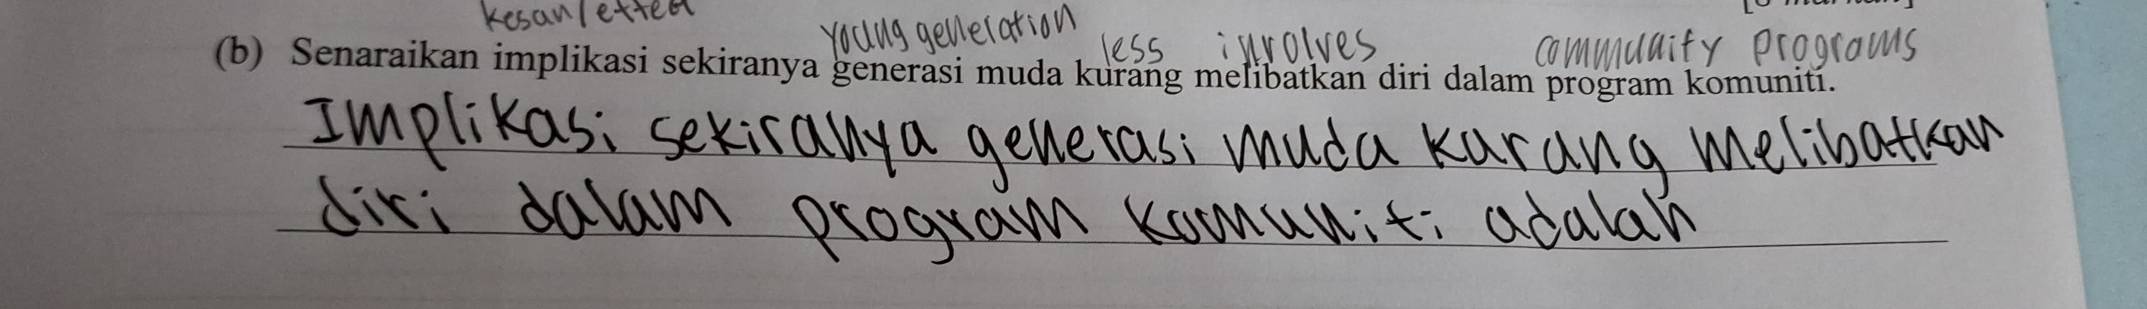 kesan/effect
young generation less involves community programs
(b) Senaraikan implikasi sekiranya generasi muda kurang melibatkan diri dalam program komuniti.
Implikasi sekiranya generasi muda kurang melibatkan
diri dalam program komuniti adalah